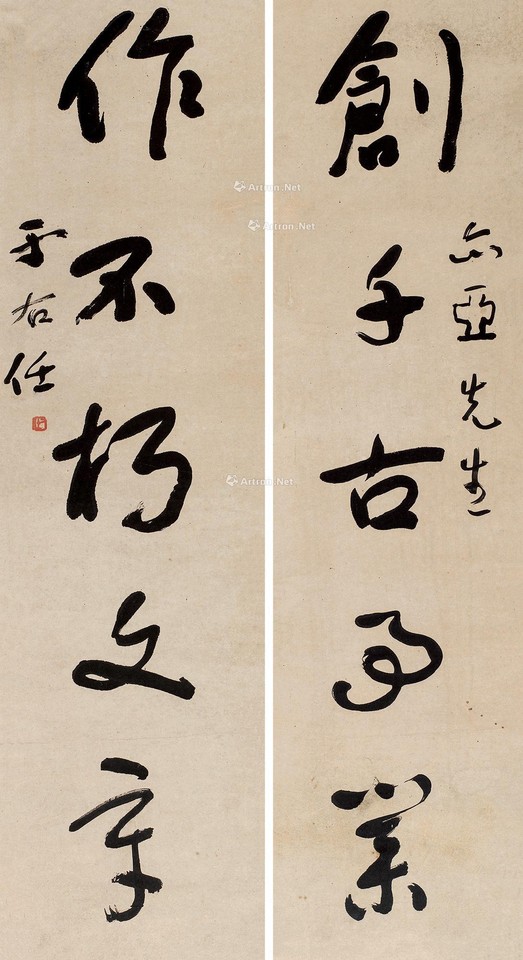 亦亞先生
創千古事業
作不朽文章
于右任
Artron.Net
Artron.Net
Artron.Net